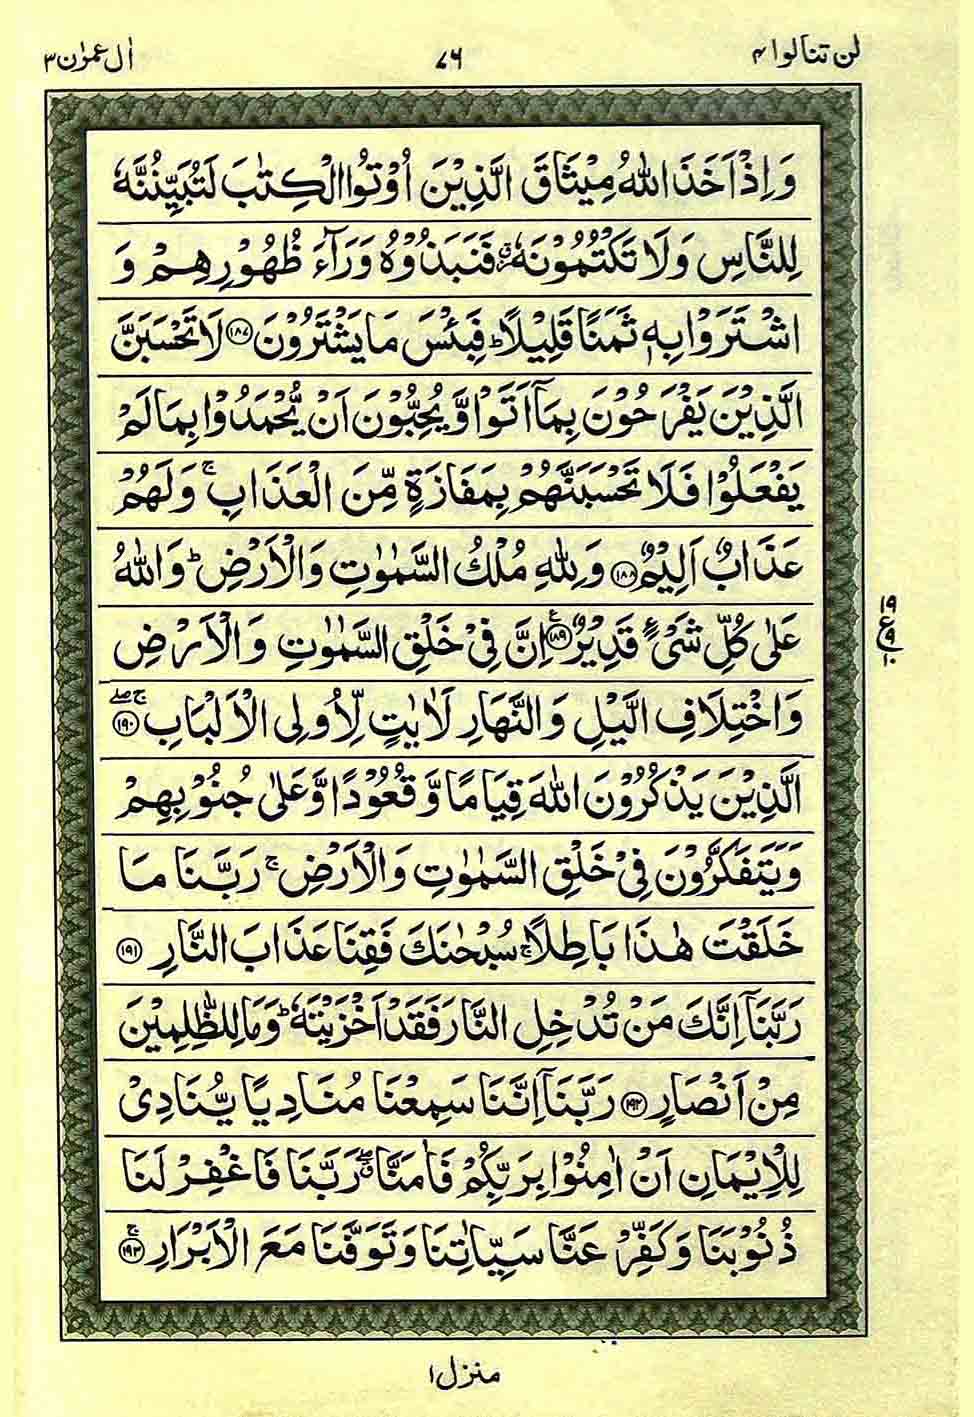 لن تنالوا ۴ ۷۶ اٰل عمرٰن ۳
وَ اِذْ اَخَذَ اللّٰهُ مِيْثَاقَ الَّذِيْنَ اُوْتُوا الْكِتٰبَ لَتُبَيِّنُنَّهٗ
لِلنَّاسِ وَ لَا تَكْتُمُوْنَهٗ ز فَنَبَذُوْهُ وَرَآءَ ظُهُوْرِهِمْ وَ
اشْتَرَوْا بِهٖ ثَمَنًا قَلِيْلًا ؕ فَبِئْسَ مَا يَشْتَرُوْنَ ﴿۱۸۷﴾ لَا تَحْسَبَنَّ
الَّذِيْنَ يَفْرَحُوْنَ بِمَاۤ اَتَوْا وَّ يُحِبُّوْنَ اَنْ يُّحْمَدُوْا بِمَا لَمْ
يَفْعَلُوْا فَلَا تَحْسَبَنَّهُمْ بِمَفَازَةٍ مِّنَ الْعَذَابِ ۚ وَ لَهُمْ
عَذَابٌ اَلِيْمٌ ﴿۱۸۸﴾ وَ لِلّٰهِ مُلْكُ السَّمٰوٰتِ وَ الْاَرْضِ ؕ وَ اللّٰهُ
عَلٰى كُلِّ شَيْءٍ قَدِيْرٌ ﴿۱۸۹﴾ ع اِنَّ فِيْ خَلْقِ السَّمٰوٰتِ وَ الْاَرْضِ
۱۹
ع ۹
۱۰
وَ اخْتِلَافِ الَّيْلِ وَ النَّهَارِ لَاٰيٰتٍ لِّاُولِى الْاَلْبَابِ ﴿۱۹۰﴾ ج صلے
الَّذِيْنَ يَذْكُرُوْنَ اللّٰهَ قِيَامًا وَّ قُعُوْدًا وَّ عَلٰى جُنُوْبِهِمْ
وَ يَتَفَكَّرُوْنَ فِيْ خَلْقِ السَّمٰوٰتِ وَ الْاَرْضِ ۚ رَبَّنَا مَا
خَلَقْتَ هٰذَا بَاطِلًا ۚ سُبْحٰنَكَ فَقِنَا عَذَابَ النَّارِ ﴿۱۹۱﴾
رَبَّنَاۤ اِنَّكَ مَنْ تُدْخِلِ النَّارَ فَقَدْ اَخْزَيْتَهٗ ؕ وَ مَا لِلظّٰلِمِيْنَ
مِنْ اَنْصَارٍ ﴿۱۹۲﴾ رَبَّنَاۤ اِنَّنَا سَمِعْنَا مُنَادِيًا يُّنَادِيْ
لِلْاِيْمَانِ اَنْ اٰمِنُوْا بِرَبِّكُمْ فَاٰمَنَّا ۖ ق رَبَّنَا فَاغْفِرْ لَنَا
ذُنُوْبَنَا وَ كَفِّرْ عَنَّا سَيِّاٰتِنَا وَ تَوَفَّنَا مَعَ الْاَبْرَارِ ﴿۱۹۳﴾ ۚ
منزل ۱